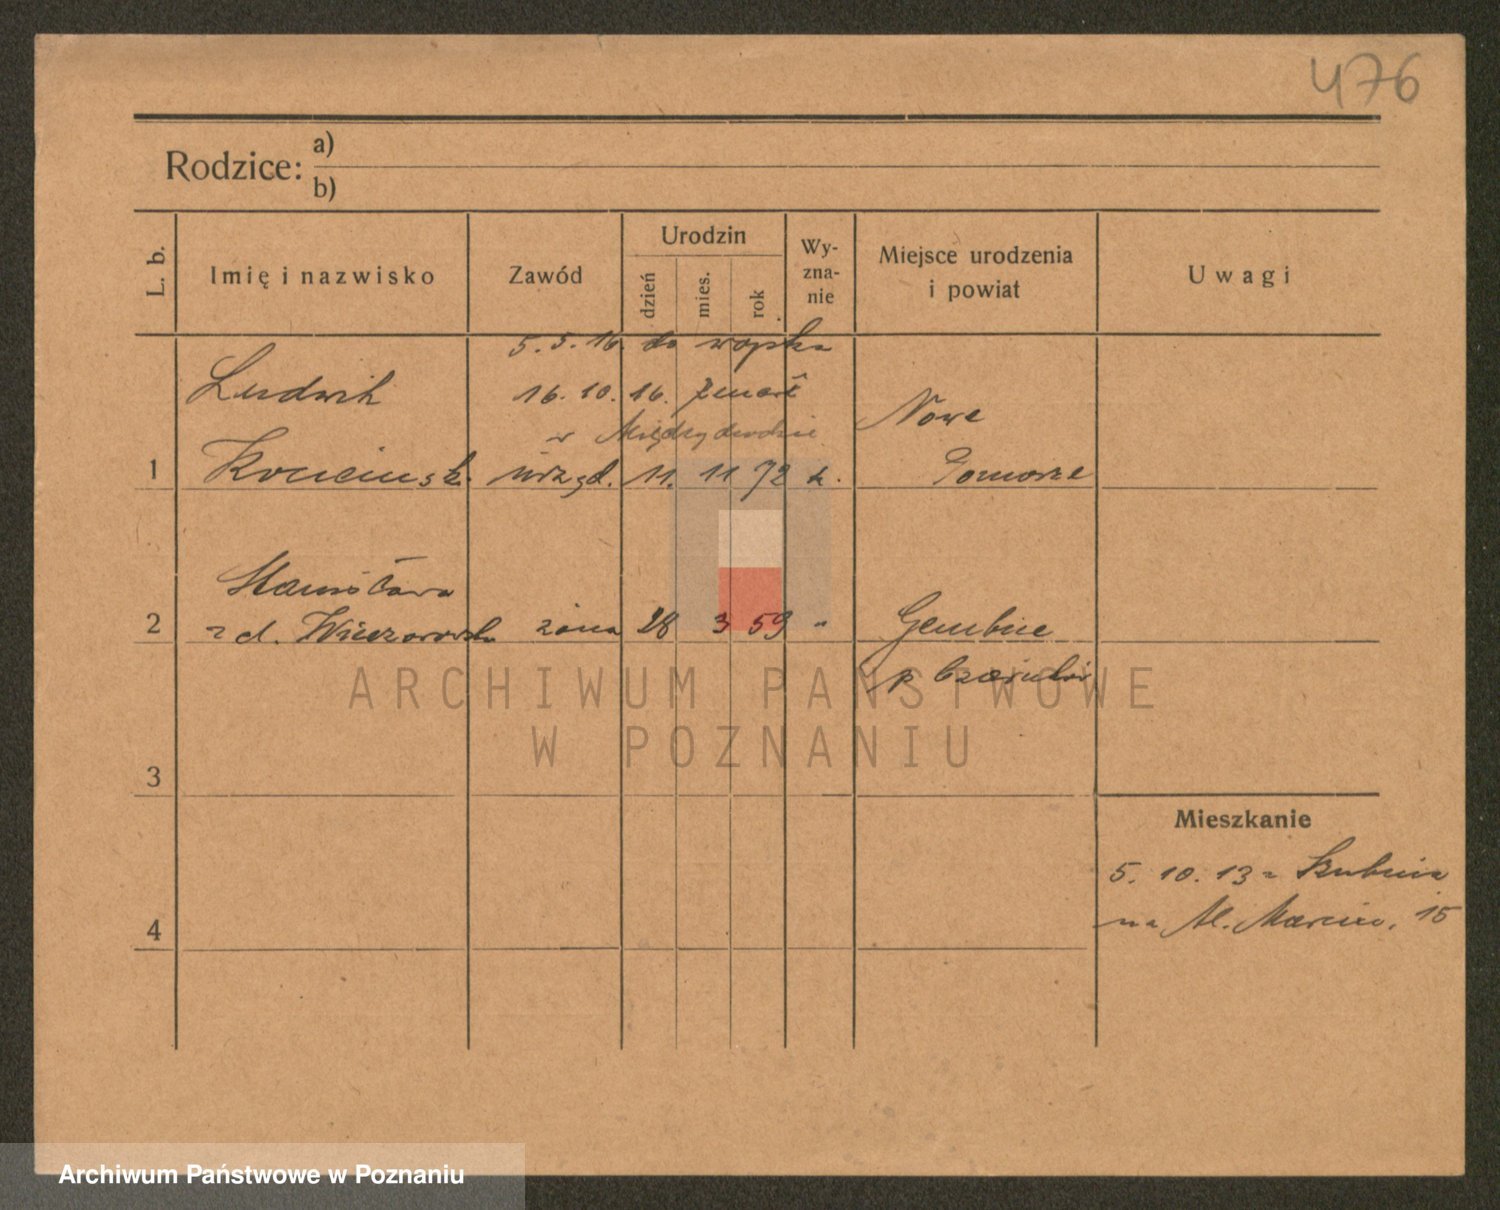 476
Rodzice: a)
b)
L. b.
Imię i nazwisko
Zawód
Urodzin
dzień
mies.
rok
Wy-
zna-
nie
Miejsce urodzenia
i powiat
Uwagi
5. 5. 16. do wojska
16. 10. 16. zmarł
w Międzychodzie
1
Ludwik
urzęd. 11. 11 72 k.
Nowe
Pomorze
2
Stanisława
z d. Wieczorowska żona 28 3 59 "
Gembice
p Czarnków
ARCHIWUM PAŃSTWOWE
W POZNANIU
3
4
Mieszkanie
5. 10. 13 z Szubina
na St. Marcin, 15
Archiwum Państwowe w Poznaniu